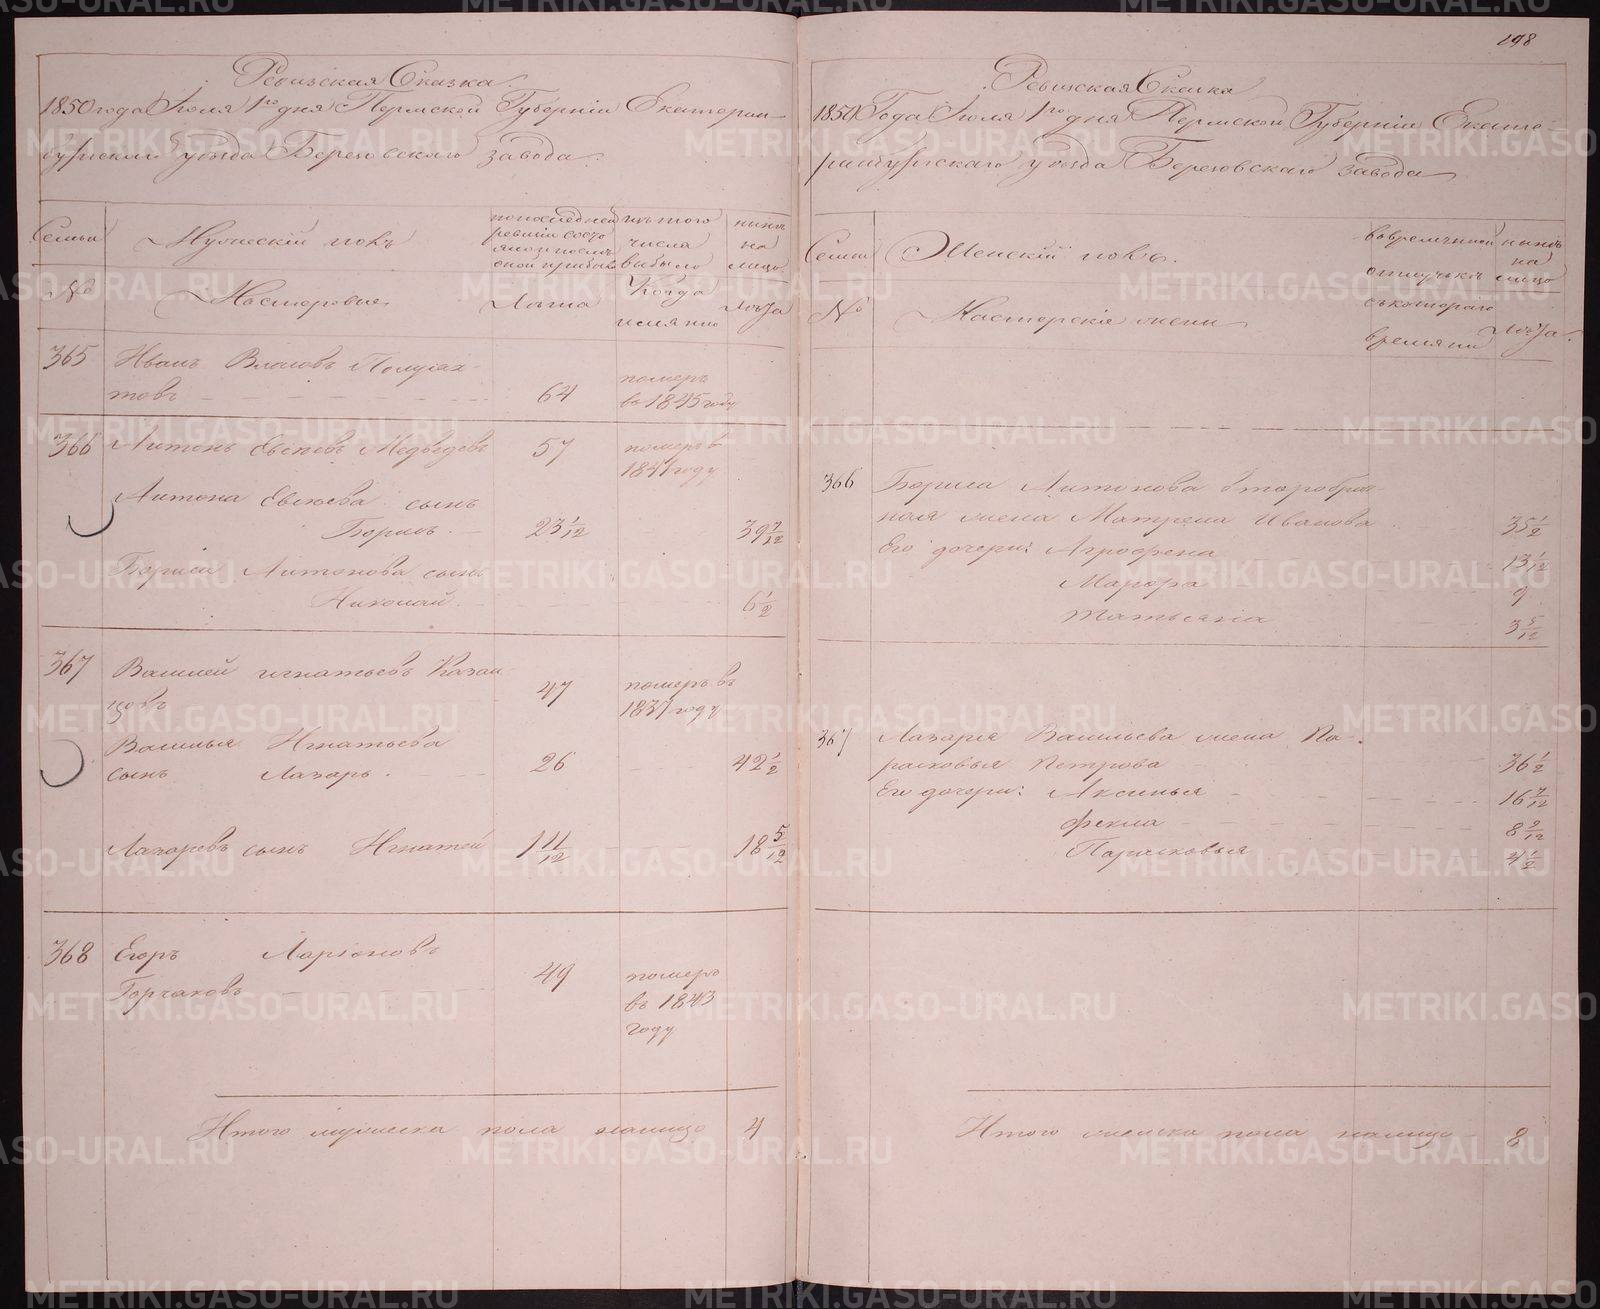 Ревизская Сказка.
1850 года Июля 1го дня Пермской Губернии Екатерин-
бургскаго уезда Березовскаго завода.
Семьи
Мужеский полъ
по последней ревизии состояло и после оной прибыло
изъ того числа выбыло
ныне на лицо
№
Мастеровые
Лета
Когда именно
Лета
365
Иванъ Власовъ Полуях-
товъ
64
померъ
въ 1845 году
366
Антонъ Евсеевъ Медведевъ
57
померъ в
1841 году
Антона Евсеева сынъ
Борисъ.
23 1/12
39 7/12
Бориса Антонова сынъ
Николай.
6 1/2
367
Василей игнатьевъ Казан-
цовъ
47
померъ въ
1837 году
Василья Игнатьева
сынъ Лазарь.
26
42 1/2
Лазаревъ сынъ Игнатей
1 11/12
18 5/12
368
Егоръ Ларіоновъ
Горчаковъ
49
померъ
въ 1843
году
Итого мужеска пола налицо 4
198
Ревизская Сказка
1850 Года Июля 1го дня Пермской Губерніи Екате-
ринбургскаго уезда Березовскаго завода
Семьи
Женскій полъ.
во временной отлучке
ныне на лицо
№
Мастерскіе жены
съ котораго времяни
Лета.
366
Бориса Антонова второбрач-
ная жена Матрена Иванова
35 1/2
Его дочери: Агрофена
13 1/12
Мавра
9
Татьяна
3 5/12
367
Лазаря Васильева жена Па-
расковья Петрова
36 1/2
Его дочери: Аксинья
16 7/12
Фекла
8 9/12
Парасковья
4 1/2
Итого женска пола налицо 8
METRIKI.GASO-URAL.RU